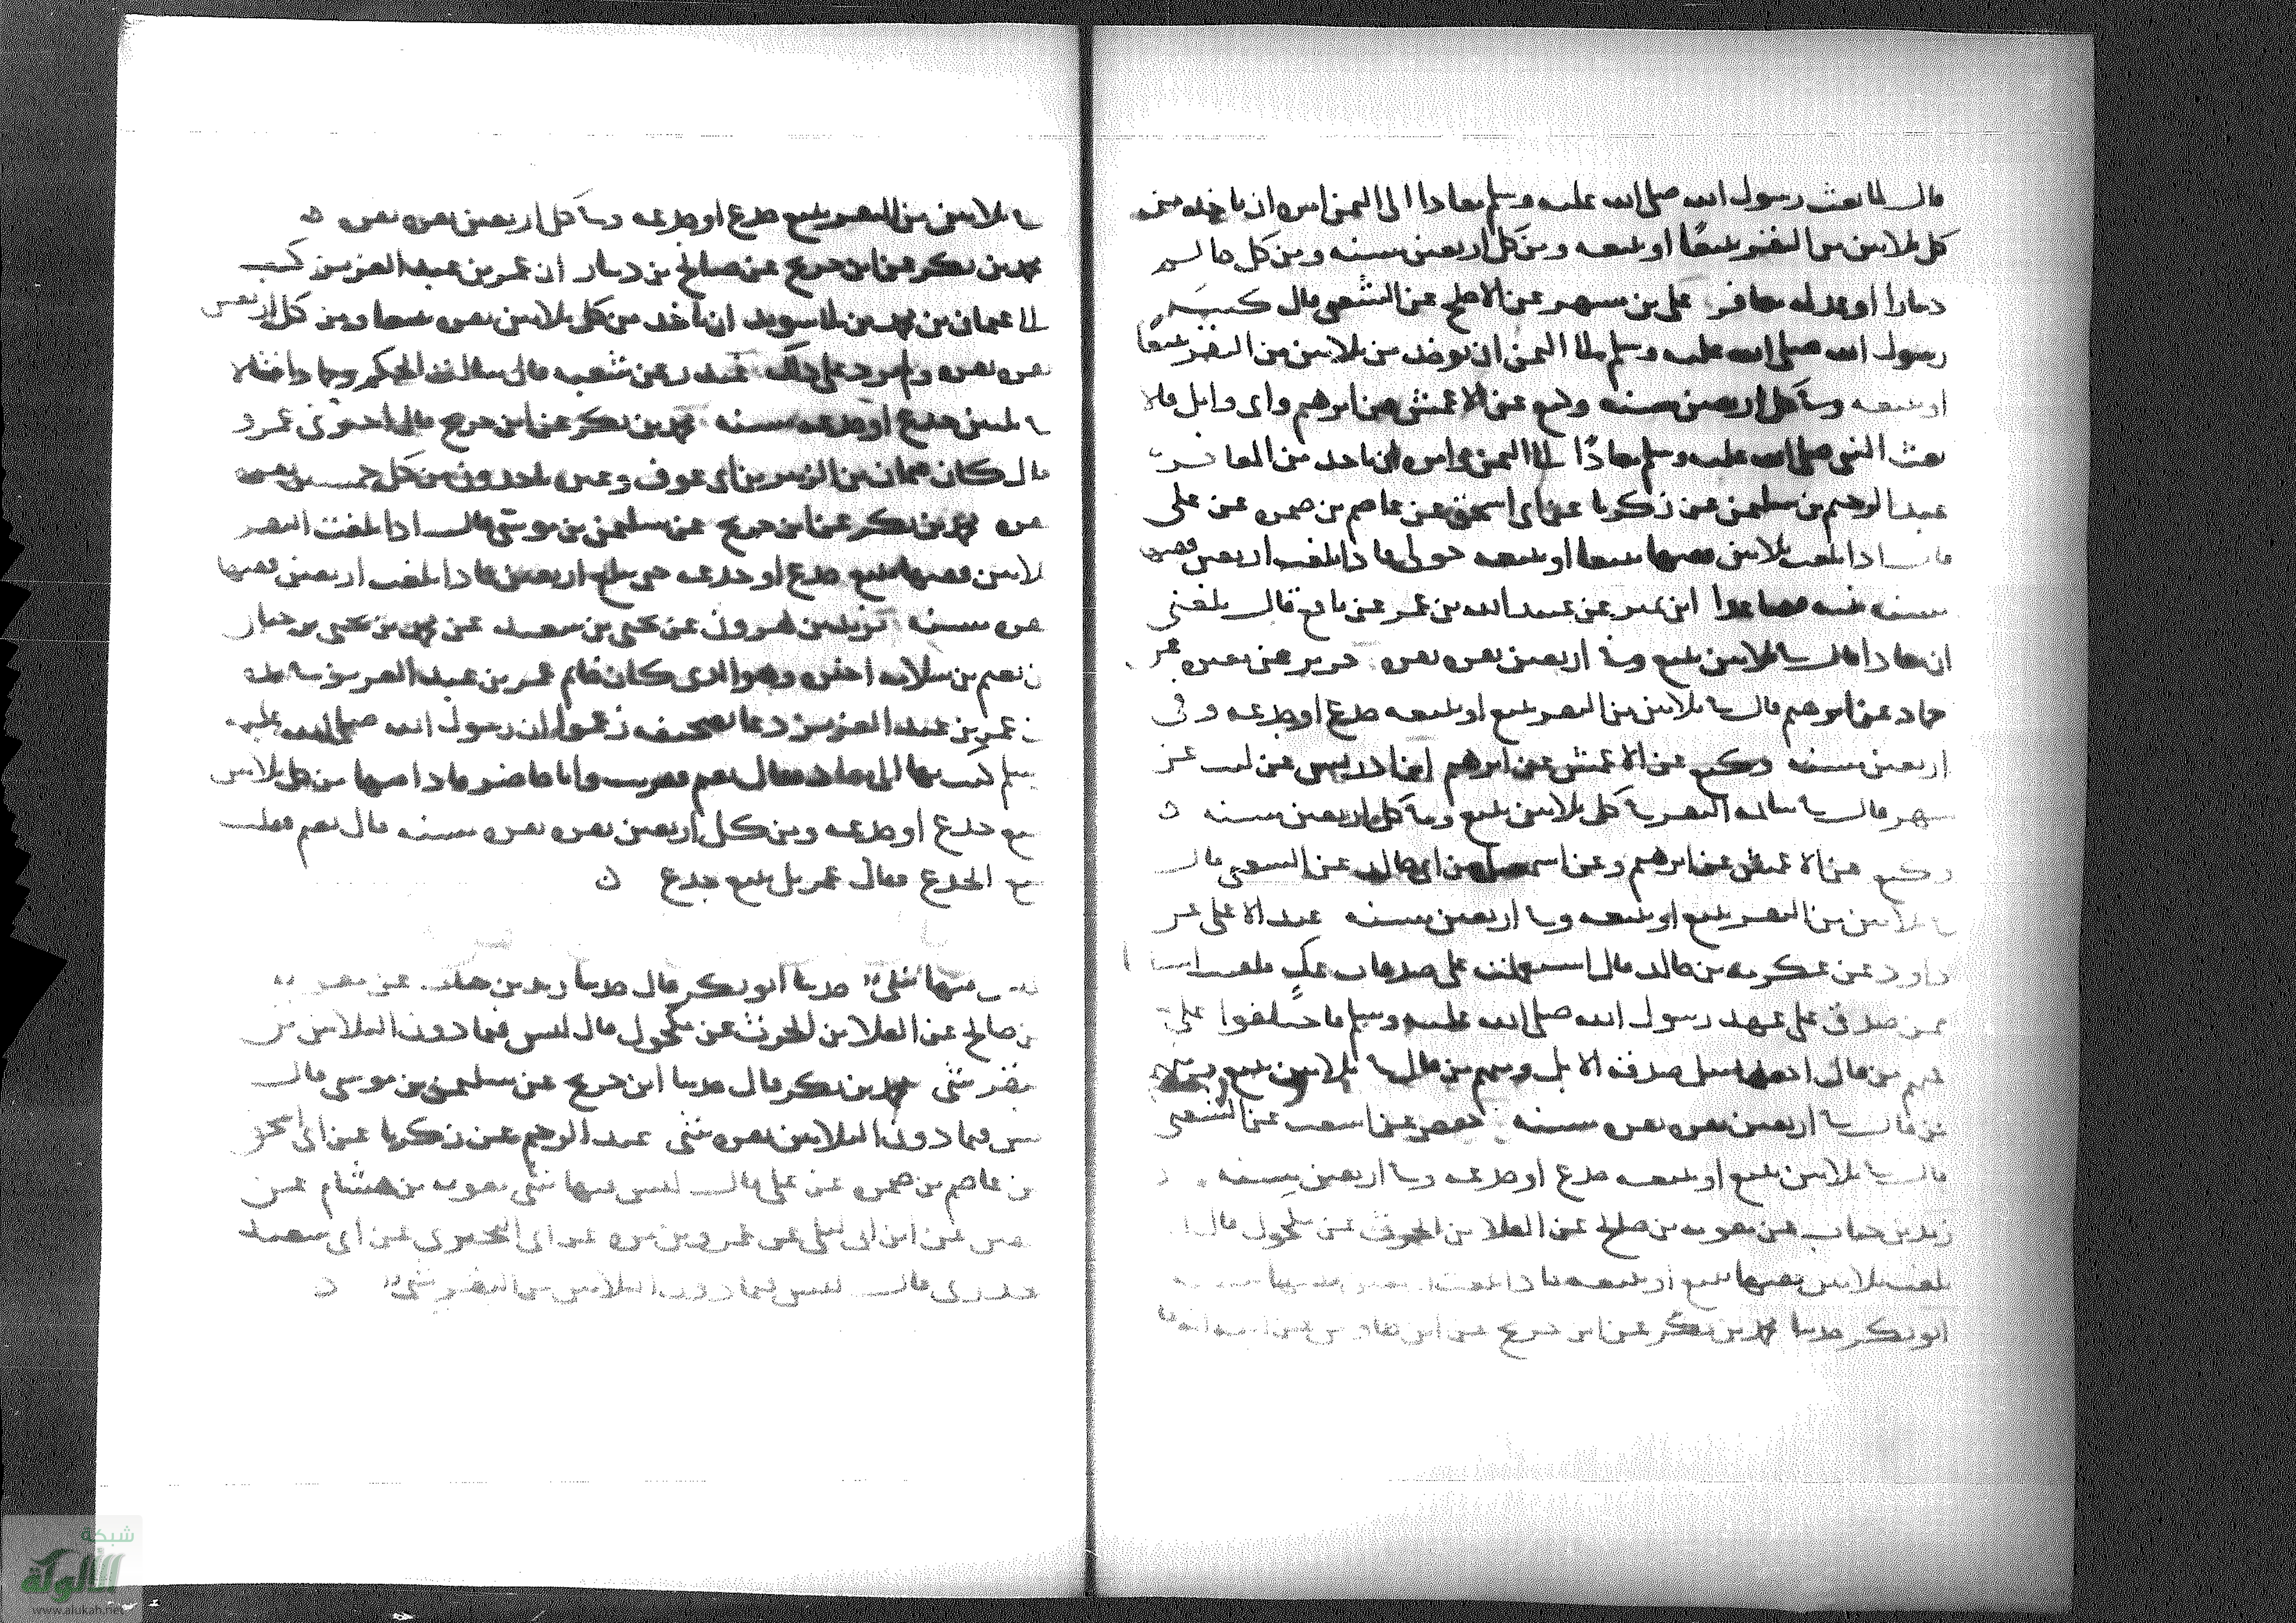 قال لما بعث رسول الله صلى الله عليه وسلم معاذا الى اليمن امره ان ياخذ من
كل ثلاثين من البقر تبيعا او تبيعه ومن كل اربعين مسنه ومن كل حالم
دينارا او عدله معافر علي بن مسهر عن الاجلح عن الشعبي قال كتب
رسول الله صلى الله عليه وسلم الى اليمن ان يوخذ من ثلاثين من البقر تبيعا
او تبيعه ومن كل اربعين مسنه وكيع عن الاعمش عن ابرهيم وابي وايل قالا
بعث النبي صلى الله عليه وسلم معاذا الى اليمن وامره ان ياخذ من البقر
عبد الرحيم بن سليمن عن زكريا عن ابي اسحق عن عاصم بن ضمره عن علي
قال اذا بلغت ثلاثين ففيها تبيع او تبيعه حولي فاذا بلغت اربعين ففيها
مسنه ثنيه فصاعدا ابن نمير عن عبيد الله بن عمر عن نافع قال بلغني
ان معاذا قال في ثلاثين تبيع وفي اربعين بقره بقره جرير عن مغيره عن
حماد عن ابرهيم قال في ثلاثين من البقر تبيع او تبيعه جذع او جذعه وفي
اربعين مسنه وكيع عن الاعمش عن ابرهيم ابن ادريس عن ليث عن
شهر قال في سايمه البقر في كل ثلاثين تبيع وفي كل اربعين مسنه
وكيع عن الاعمش عن ابرهيم وعن اسمعيل بن ابي خالد عن الشعبي قال
في ثلاثين من البقر تبيع او تبيعه وفي اربعين مسنه عبد الاعلى عن
داود عن عكرمه بن خالد قال استعملت على صدقات عك فلقيت اشياخا
ممن صدق على عهد رسول الله صلى الله عليه وسلم فاختلفوا علي
فمنهم من قال اجعلها مثل صدقه الابل ومنهم من قال في ثلاثين تبيع ومنهم
من قال في اربعين بقره بقره مسنه حفص عن اشعث عن الشعبي
قال في ثلاثين تبيع او تبيعه جذع او جذعه وفي اربعين مسنه
زيد بن حباب عن معويه بن صالح عن العلا بن الحرث عن مكحول قال
بلغت ثلاثين ففيها تبيع او تبيعه فاذا بلغت
ابو بكر حدثنا محمد بن بكر عن ابن جريج عن ابن طاوس عن ابيه انه قال
في ثلاثين من البقر تبيع جذع او جذعه وفي كل اربعين بقره بقره
محمد بن بكر عن ابن جريج عن صالح بن دينار ان عمر بن عبد العزيز كتب
الى عثمان بن محمد بن ابي سويد ان ياخذ من كل ثلاثين بقره تبيعا ومن كل اربعين
بقره بقره ولم يزد على ذلك غندر عن شعبه قال سالت الحكم وحمادا فقالا
في ثلثين جذع او جذعه مسنه محمد بن بكر عن ابن جريج قال اخبرني عمرو
قال كان عمال بن الزبير بن ابي عوف وغيره ياخذون من كل خمسين بقره
بقره محمد بن بكر عن ابن جريج عن سليمن بن موسى قال اذا بلغت البقر
ثلاثين ففيها تبيع جذع او جذعه حتى تبلغ اربعين فاذا بلغت اربعين ففيها
بقره مسنه يزيد بن هرون عن يحيى بن سعيد عن محمد بن يحيى بن حبان
ان نعيم بن سلامه اخبره وهو الذي كان خاتم عمر بن عبد العزيز في يده
ان عمر بن عبد العزيز دعا بصحيفه زعموا ان رسول الله صلى الله عليه
وسلم كتب بها الى معاذ فقال نعيم فقريت وانا حاضر فاذا فيها من كل ثلاثين
تبيع جذع او جذعه ومن كل اربعين بقره بقره مسنه قال نعيم فقلت
تبيع الجذع فقال عمر بل تبيع جذع
فليس فيها شيء حدثنا ابو بكر قال حدثنا زيد بن حباب عن معويه
بن صالح عن العلا بن الحرث عن مكحول قال ليس فيما دون الثلاثين من
البقر شي محمد بن بكر قال حدثنا ابن جريج عن سليمن بن موسى قال
ليس فيما دون الثلاثين بقره شي عبد الرحيم عن زكريا عن ابي اسحق
عن عاصم بن ضمره عن علي قال ليس فيها شي معويه بن هشام عن
عن ابن ابي ليلى عن عمرو بن مره عن ابي البختري عن ابي سعيد
الخدري قال ليس فيما دون الثلاثين من البقر شيء
شبكة
الألوكة
www.alukah.net